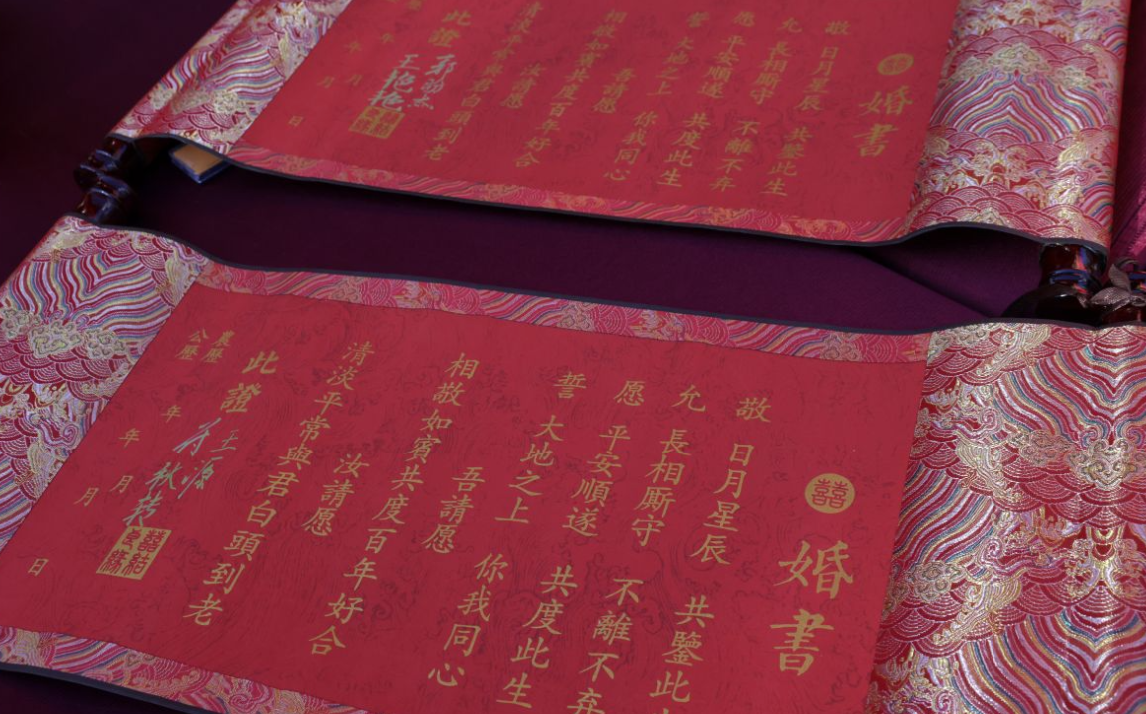 囍
婚書
敬 日月星辰 共鑒此生
允 長相厮守 不離不弃
愿 平安順遂 共度此生
誓 大地之上 你我同心
吾請愿
相敬如賓共度百年好合
汝請愿
清淡平常與君白頭到老
此證
年 月
年 月 日
王艳艳
囍
婚書
敬 日月星辰 共鑒此
允 長相厮守 不離不弃
愿 平安順遂 共度此生
誓 大地之上 你我同心
吾請愿
相敬如賓共度百年好合
汝請愿
清淡平常與君白頭到老
此證
農曆 年 月 日
公曆 年 月
王源
囍結良緣